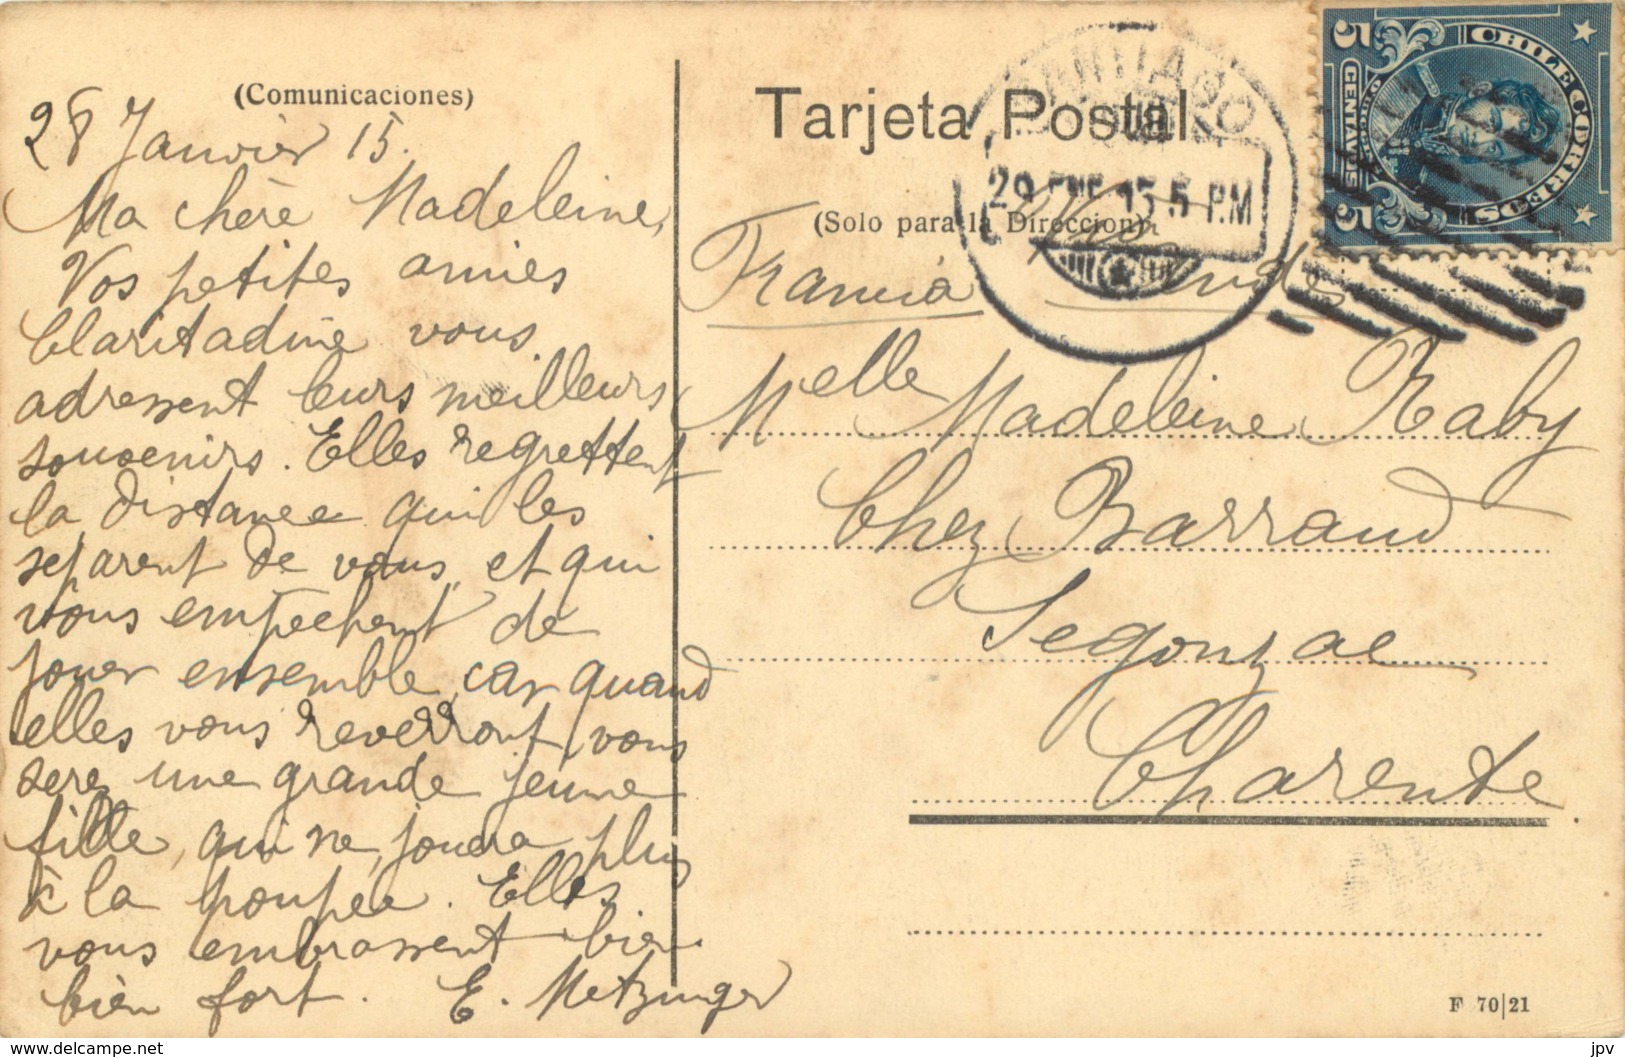 (Comunicaciones)
28 Janvier 15.
Ma chère Madeleine,
Vos petites amies
vous
adressent leurs meilleurs
souvenirs. Elles regrettent
la distance qui les
séparent de vous, et qui
vous empêchent de
jouer ensemble, car quand
elles vous reverront, vous
serez une grande jeune
fille, qui ne jouera plus
à la poupée. Elles
vous embrassent bien
bien fort. E. Metzinger
Tarjeta Postal
(Solo para la Direccion)
SANTIAGO
29 ENE 15 5 P.M
CHILE CORREOS
5 CENTAVOS 5
Francia
Melle Madeleine Raby
Chez Barraud
Segonzac
Charente
F 70|21
delcampe.net
jpv